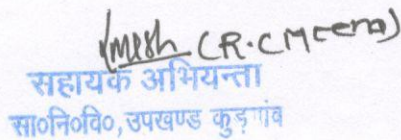 (R.C Meena)
सहायक अभियन्ता
सा०नि०वि०, उपखण्ड कुड़गांव